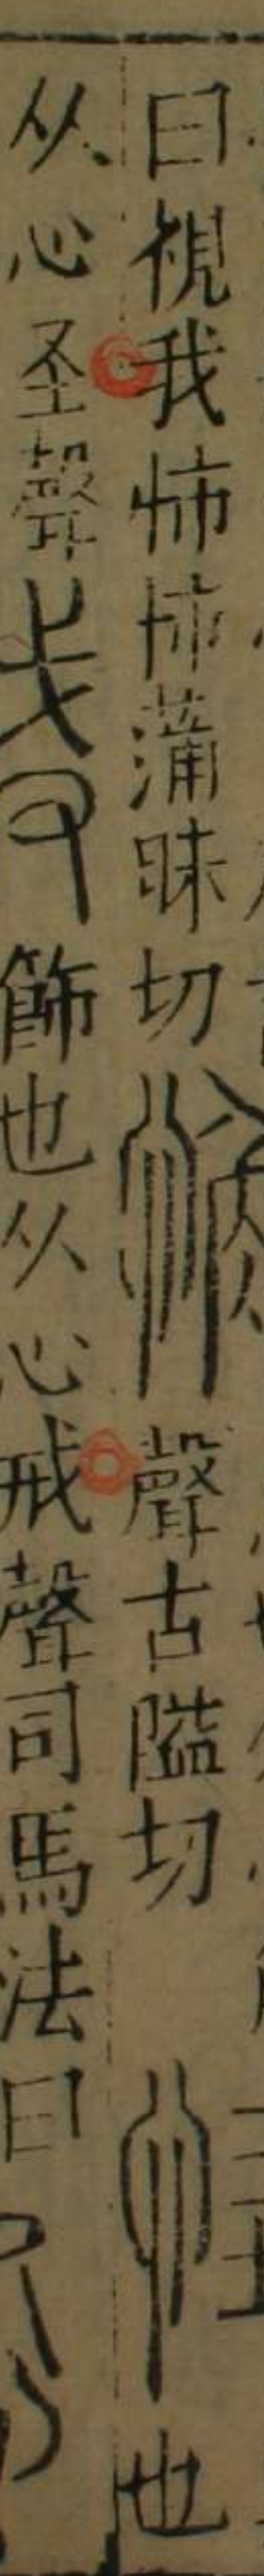 曰視我㤄㤄蒲昧切
聲古隘切
也
从心圣聲
飾也从心戒聲司馬法曰